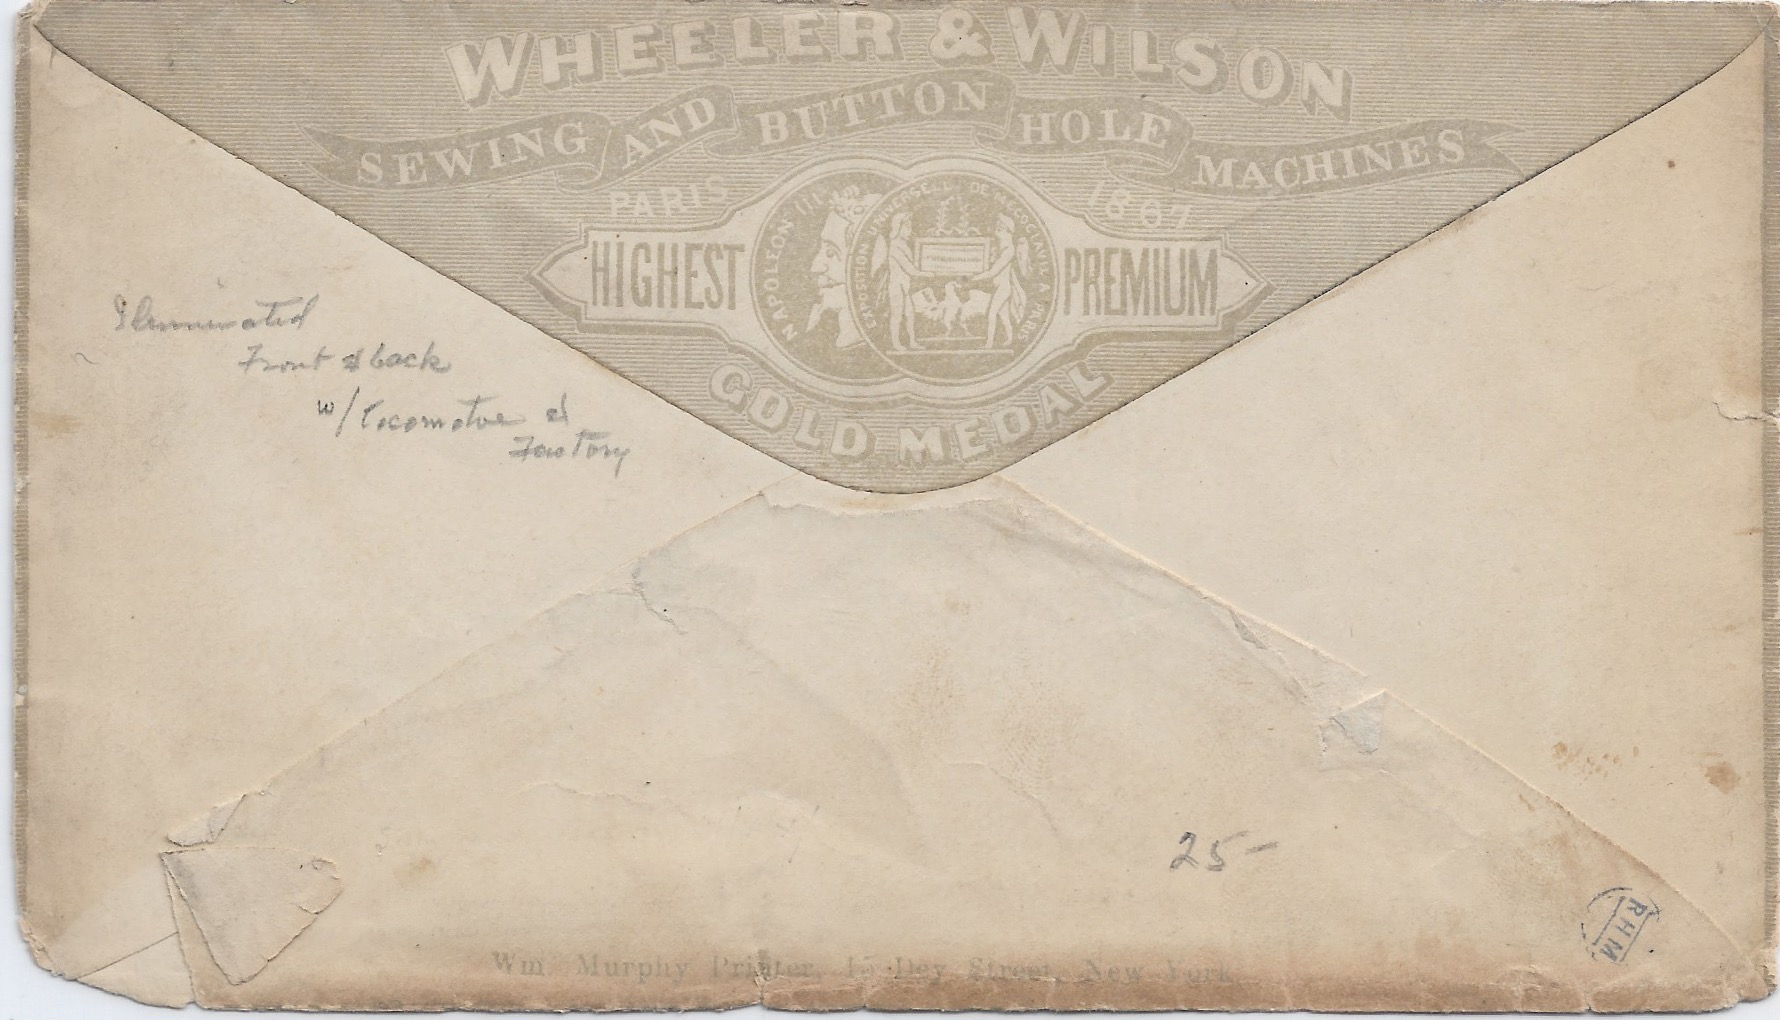 WHEELER & WILSON
SEWING AND BUTTON HOLE MACHINES
PARIS 1867
HIGHEST PREMIUM
NAPOLEON III
EXPOSITION UNIVERSELLE DE PARIS
GOLD MEDAL
Illuminated
Front & back
w/locomotive &
Factory
25-
RHM
Wm. Murphy Printer, 15 Dey Street, New York